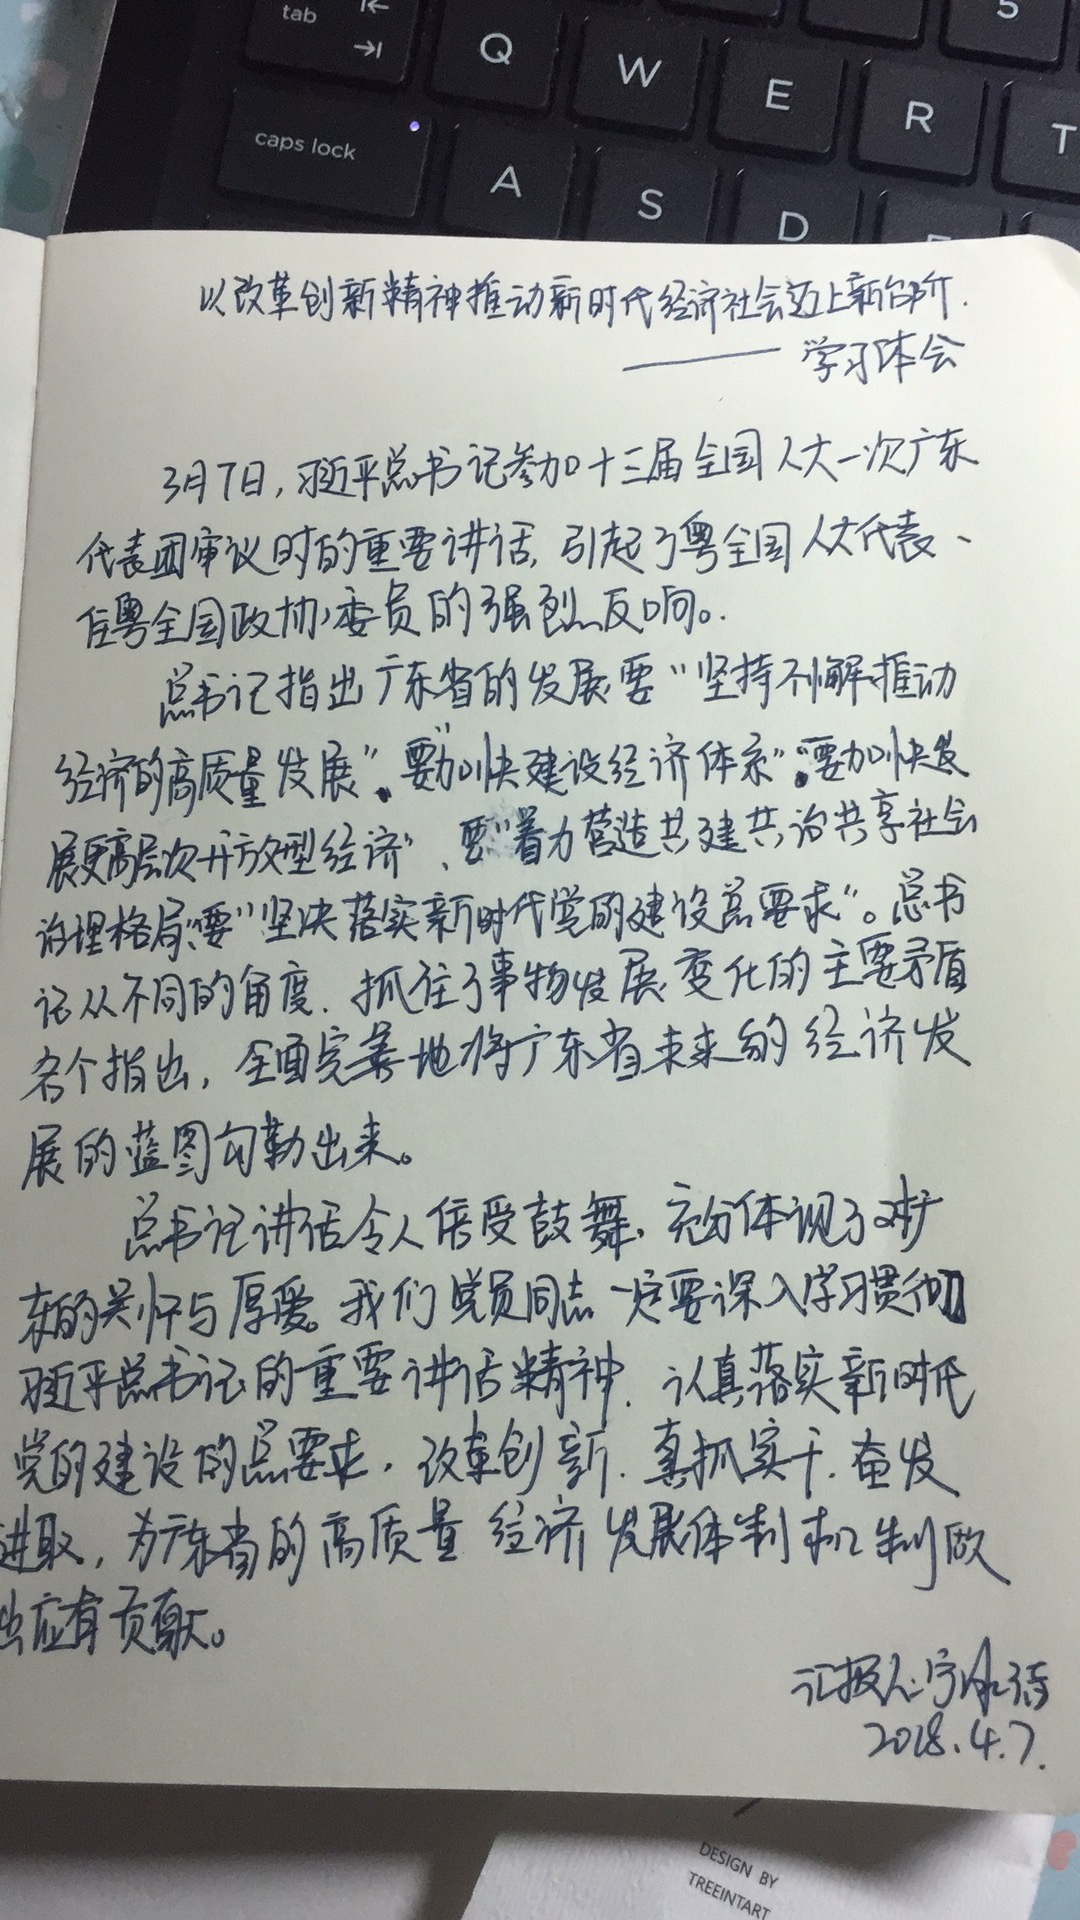 tab
Q
W
E
R
T
5
caps lock
A
S
D
以改革创新精神推动新时代经济社会迈上新台阶.
——— 学习体会
3月7日,习近平总书记参加十三届全国人大一次广东
代表团审议时的重要讲话,引起了粤全国人大代表、
住粤全国政协委员的强烈反响。
总书记指出广东省的发展要“坚持不懈推动
经济的高质量发展”、要“加快建设经济体系”、“要加快发
展更高层次开放型经济”、要“着力营造共建共治共享社会
治理格局、要“坚决落实新时代党的建设总要求”。总书
记从不同的角度,抓住了事物发展变化的主要矛盾
各个指出,全面完善地将广东省未来的经济发
展的蓝图勾勒出来。
总书记讲话令人倍受鼓舞,充分体现了对广
东的关怀与厚爱。我们党员同志一定要深入学习贯彻
习近平总书记的重要讲话精神,认真落实新时代
党的建设的总要求,改革创新.真抓实干.奋发
进取,为广东省的高质量经济发展体制机制做
出应有贡献。
汇报人:宁
2018.4.7.
DESIGN BY
TREEINTART